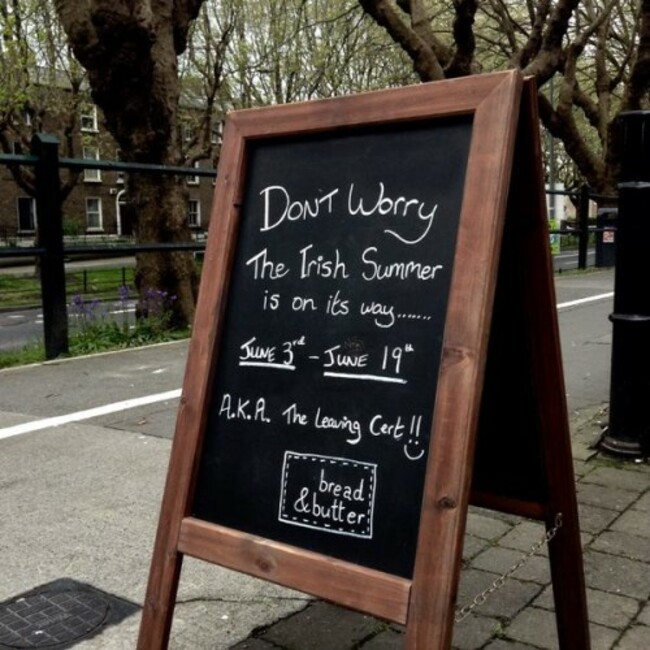 DON'T Worry
The Irish Summer
is on its way.......
JUNE 3rd - JUNE 19th
A.K.A. The Leaving Cert!!
bread
&butter